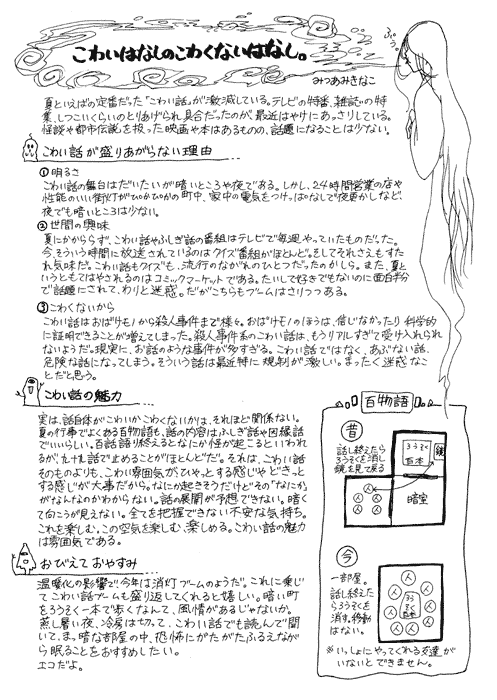 こわいはなしのこわくないはなし。
ふぅ。
みつあみきなこ
夏といえばの定番だった「こわい話」が激減している。テレビの特番、雑誌の特
集、しつこいくらいのとりあげられ具合だったのが、最近はやけにあっさりしている。
怪談や都市伝説を扱った映画や本はあるものの、話題になることは少ない。
こわい話が盛りあがらない理由
①明るさ
こわい話の舞台はだいたいが暗いところや夜である。しかし、24時間営業の店や
性能のいい街灯がぴかぴかの町中、家中の電気をつけっぱなしで夜更かしなど、
夜でも暗いところは少ない。
②世間の興味
夏にかかわらず、こわい話やふしぎ話の番組はテレビで毎週やっていたものだった。
今、そういう時間に放送されているのはクイズ番組がほとんど。そしてそれさえもすた
れ気味だ。こわい話もクイズも、流行のながれのひとつだったのかしら。また、夏と
いうともてはやされるのはコミックマーケットである。たいして好きでもないのに面白半分
で話題にされて、わりと迷惑。だがこちらもブームはさりつつある。
③こわくないから
こわい話はおばけモノから殺人事件まで様々。おばけモノのほうは、信じなかったり科学的
に証明できることが増えてしまった。殺人事件系のこわい話は、もうリアルすぎて受け入れられ
ないようだ。現実に、お話のような事件が多すぎる。こわい話ではなく、あぶない話、
危険な話になってしまう。そういう話は最近特に規制が激しい。まったく迷惑なこ
とだと思う。
こわい話の魅力
実は、話自体がこわいかこわくないかは、それほど関係ない。
夏の行事でよくある百物語も、話の内容はふしぎ話や因縁話
でいいらしい。百話語り終えるとなにか怪が起こるといわれ
るが、九十九話で止めることがほとんどだ。それは、こわい話
そのものよりも、こわい雰囲気が、ひやっとする感じや どきっと
する感じが大事だから。なにか起きそうだけどその「なにか」
がなんなのかわからない。話の展開が予想できない。暗く
て向こうが見えない。全てを把握できない不安な気持ち。
これを楽しむ。この空気を楽しむ、楽しめる。こわい話の魅力
は雰囲気である。
おびえて おやすみ
温暖化の影響で、今年は消灯ブームのようだ。これに乗じ
てこわい話ブームも盛り返してくれると嬉しい。暗い町
をろうそく一本で歩くなんて、風情があるじゃないか。
蒸し暑い夜、冷房は切って、こわい話でも読んで聞
いて、まっ暗な部屋の中、恐怖にがたがたふるえなが
ら眠ることをおすすめしたい。
エコだよ。
百物語
昔
話し終えたら
ろうそくを消し
鏡を見て戻る
ろうそく
百本
鏡
人
人
人
人
暗室
今
一部屋。
話し終えた
らろうそくを
消す。移動
はない。
人
人
人
人
人
人
人
人
ろうそく
百本
※いっしょにやってくれる友達が
いないとできません。